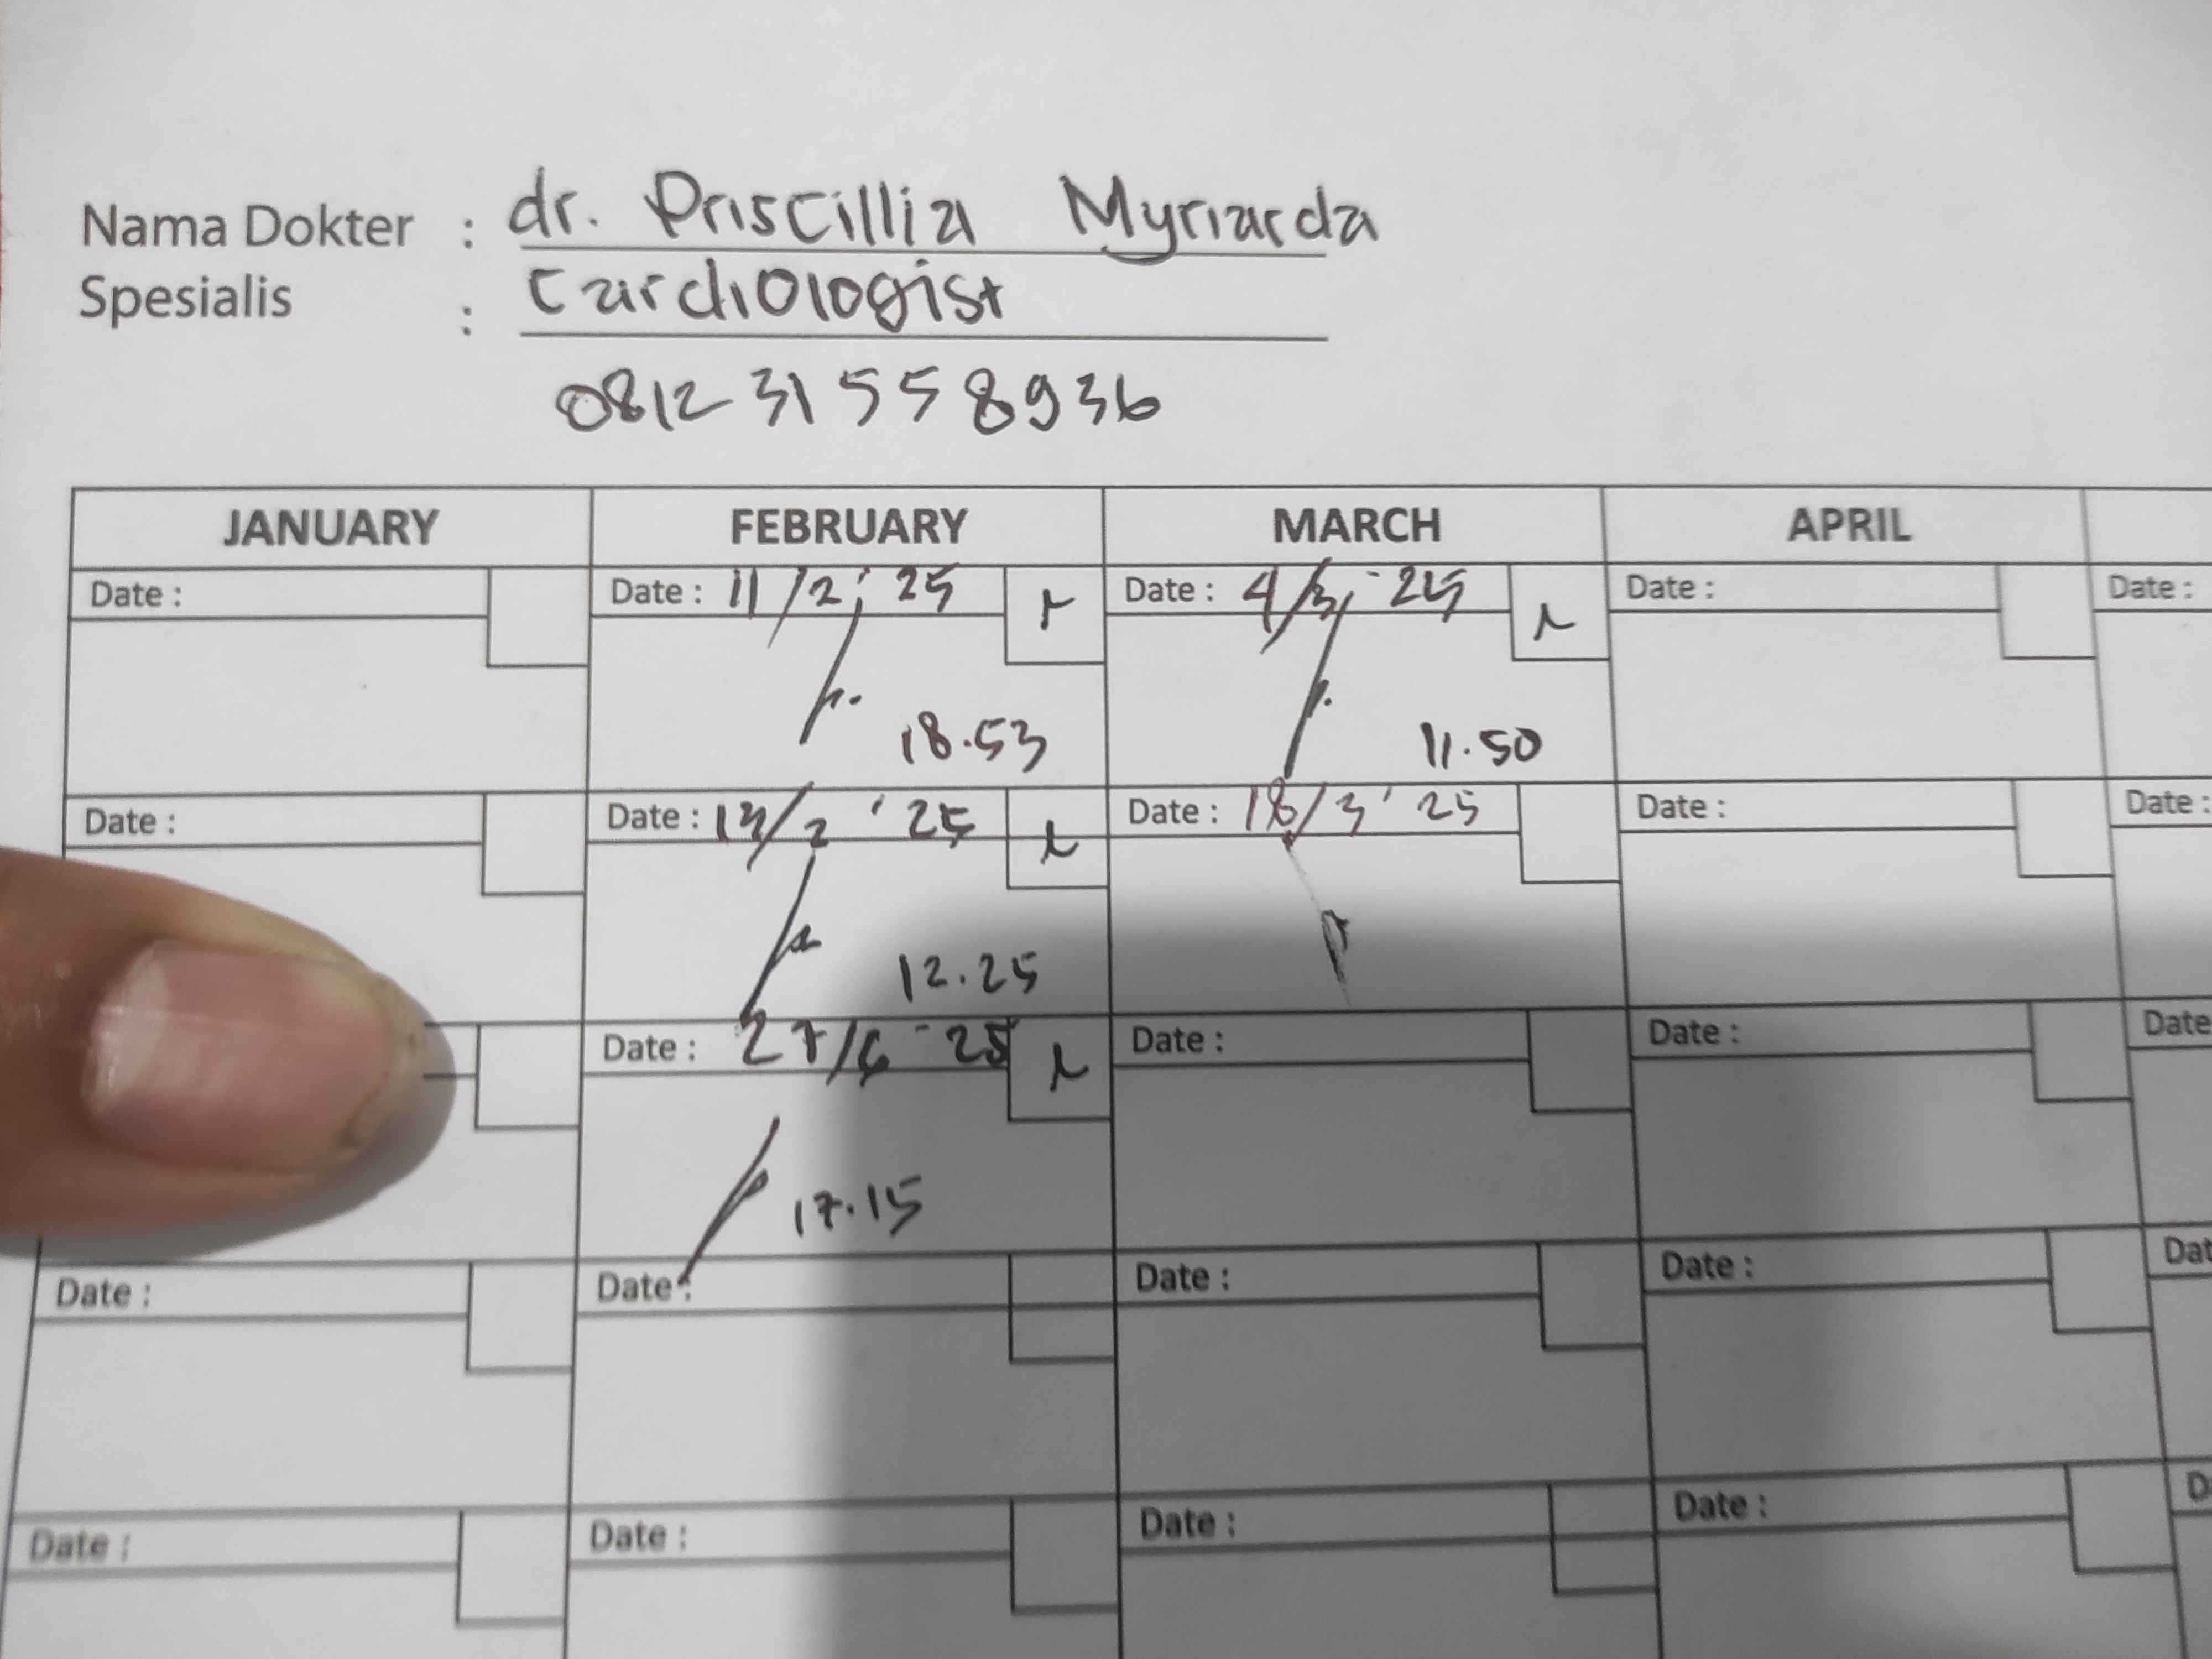 Nama Dokter : dr. Priscillia Myriarda
Spesialis : Cardiologist
081231558936
JANUARY FEBRUARY MARCH APRIL
Date : Date : 11/2 '25 Date : 4/3 '25 Date : Date :
18.53 11.50
Date : Date : 13/2 '25 Date : 18/3 '25 Date : Date :
12.25
Date : 27/6 '25 Date : Date : Date
17.15
Date : Date : Date : Date : Dat
Date : Date : Date : Date : D